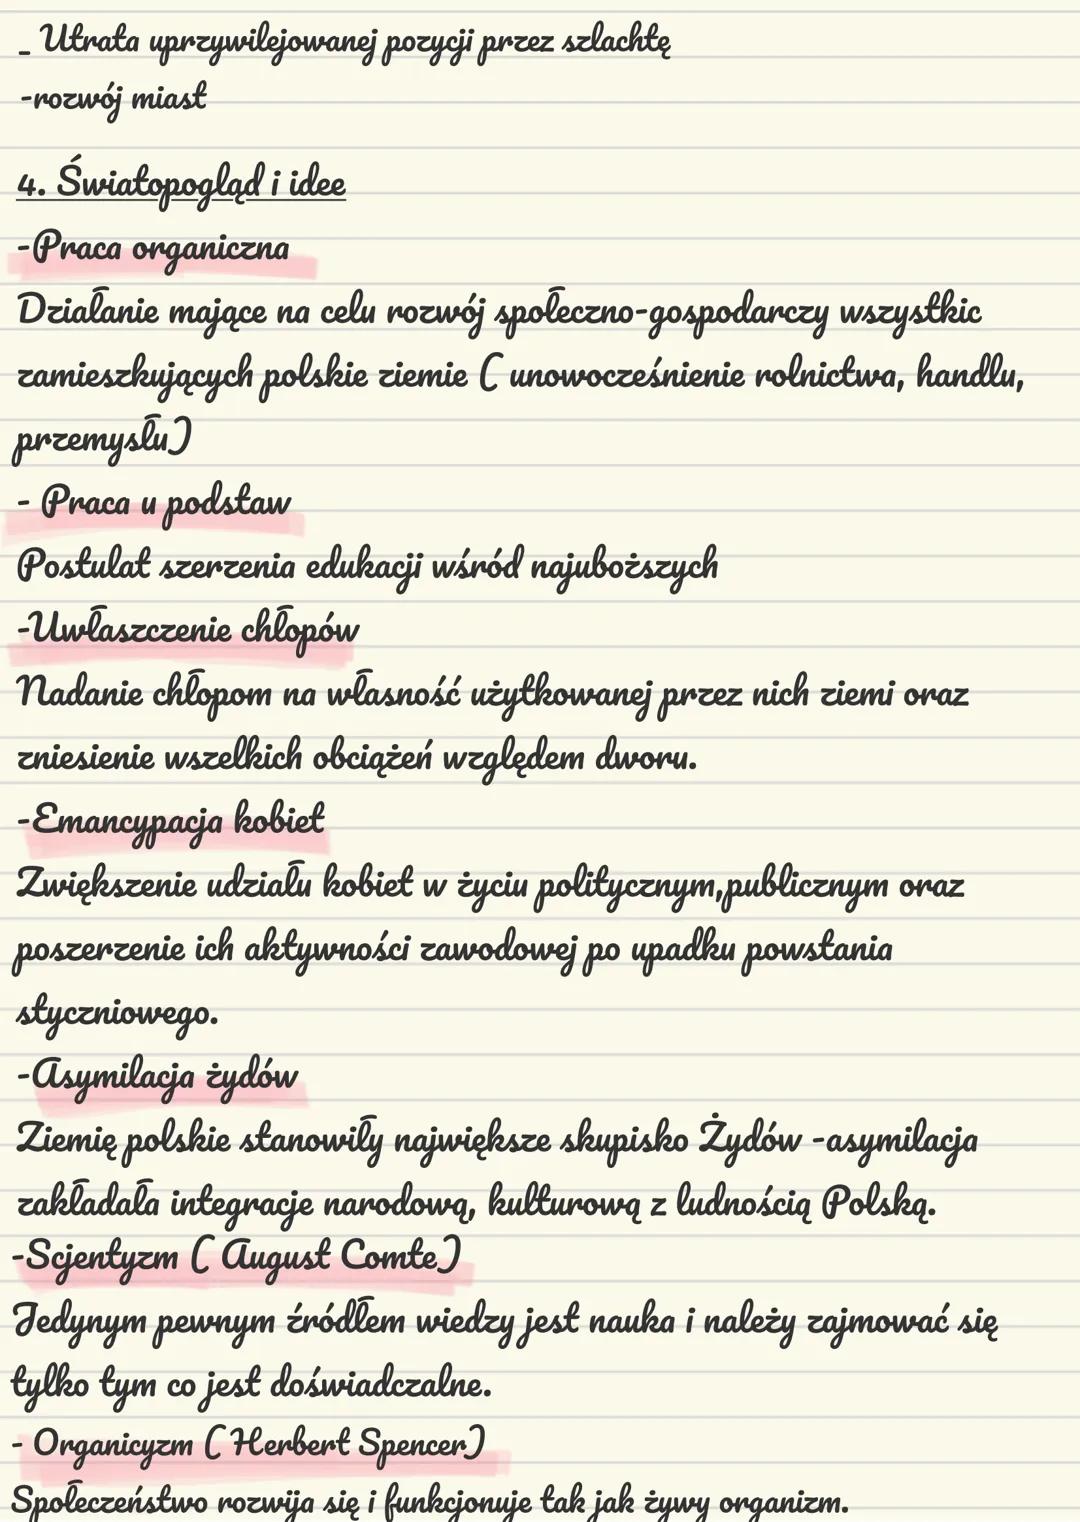 _ Utrata uprzywilejowanej pozycji przez szlachtę
-rozwój miast
4. Światopogląd i idee
-Praca organiczna
Działanie mające na celu rozwój społeczno-gospodarczy wszystkic
zamieszkujących polskie ziemie ( unowocześnienie rolnictwa, handlu,
przemysłu)
- Praca u podstaw
Postulat szerzenia edukacji wśród najuboższych
-Uwłaszczenie chłopów
Nadanie chłopom na własność użytkowanej przez nich ziemi oraz
zniesienie wszelkich obciążeń względem dworu.
-Emancypacja kobiet
Zwiększenie udziału kobiet w życiu politycznym,publicznym oraz
poszerzenie ich aktywności zawodowej po upadku powstania
styczniowego.
-Asymilacja żydów
Ziemię polskie stanowiły największe skupisko Żydów -asymilacja
zakładała integracje narodową, kulturową z ludnością Polską.
-Scjentyzm ( August Comte)
Jedynym pewnym źródłem wiedzy jest nauka i należy zajmować się
tylko tym co jest doświadczalne.
- Organicyzm ( Herbert Spencer)
Społeczeństwo rozwija się i funkcjonuje tak jak żywy organizm.